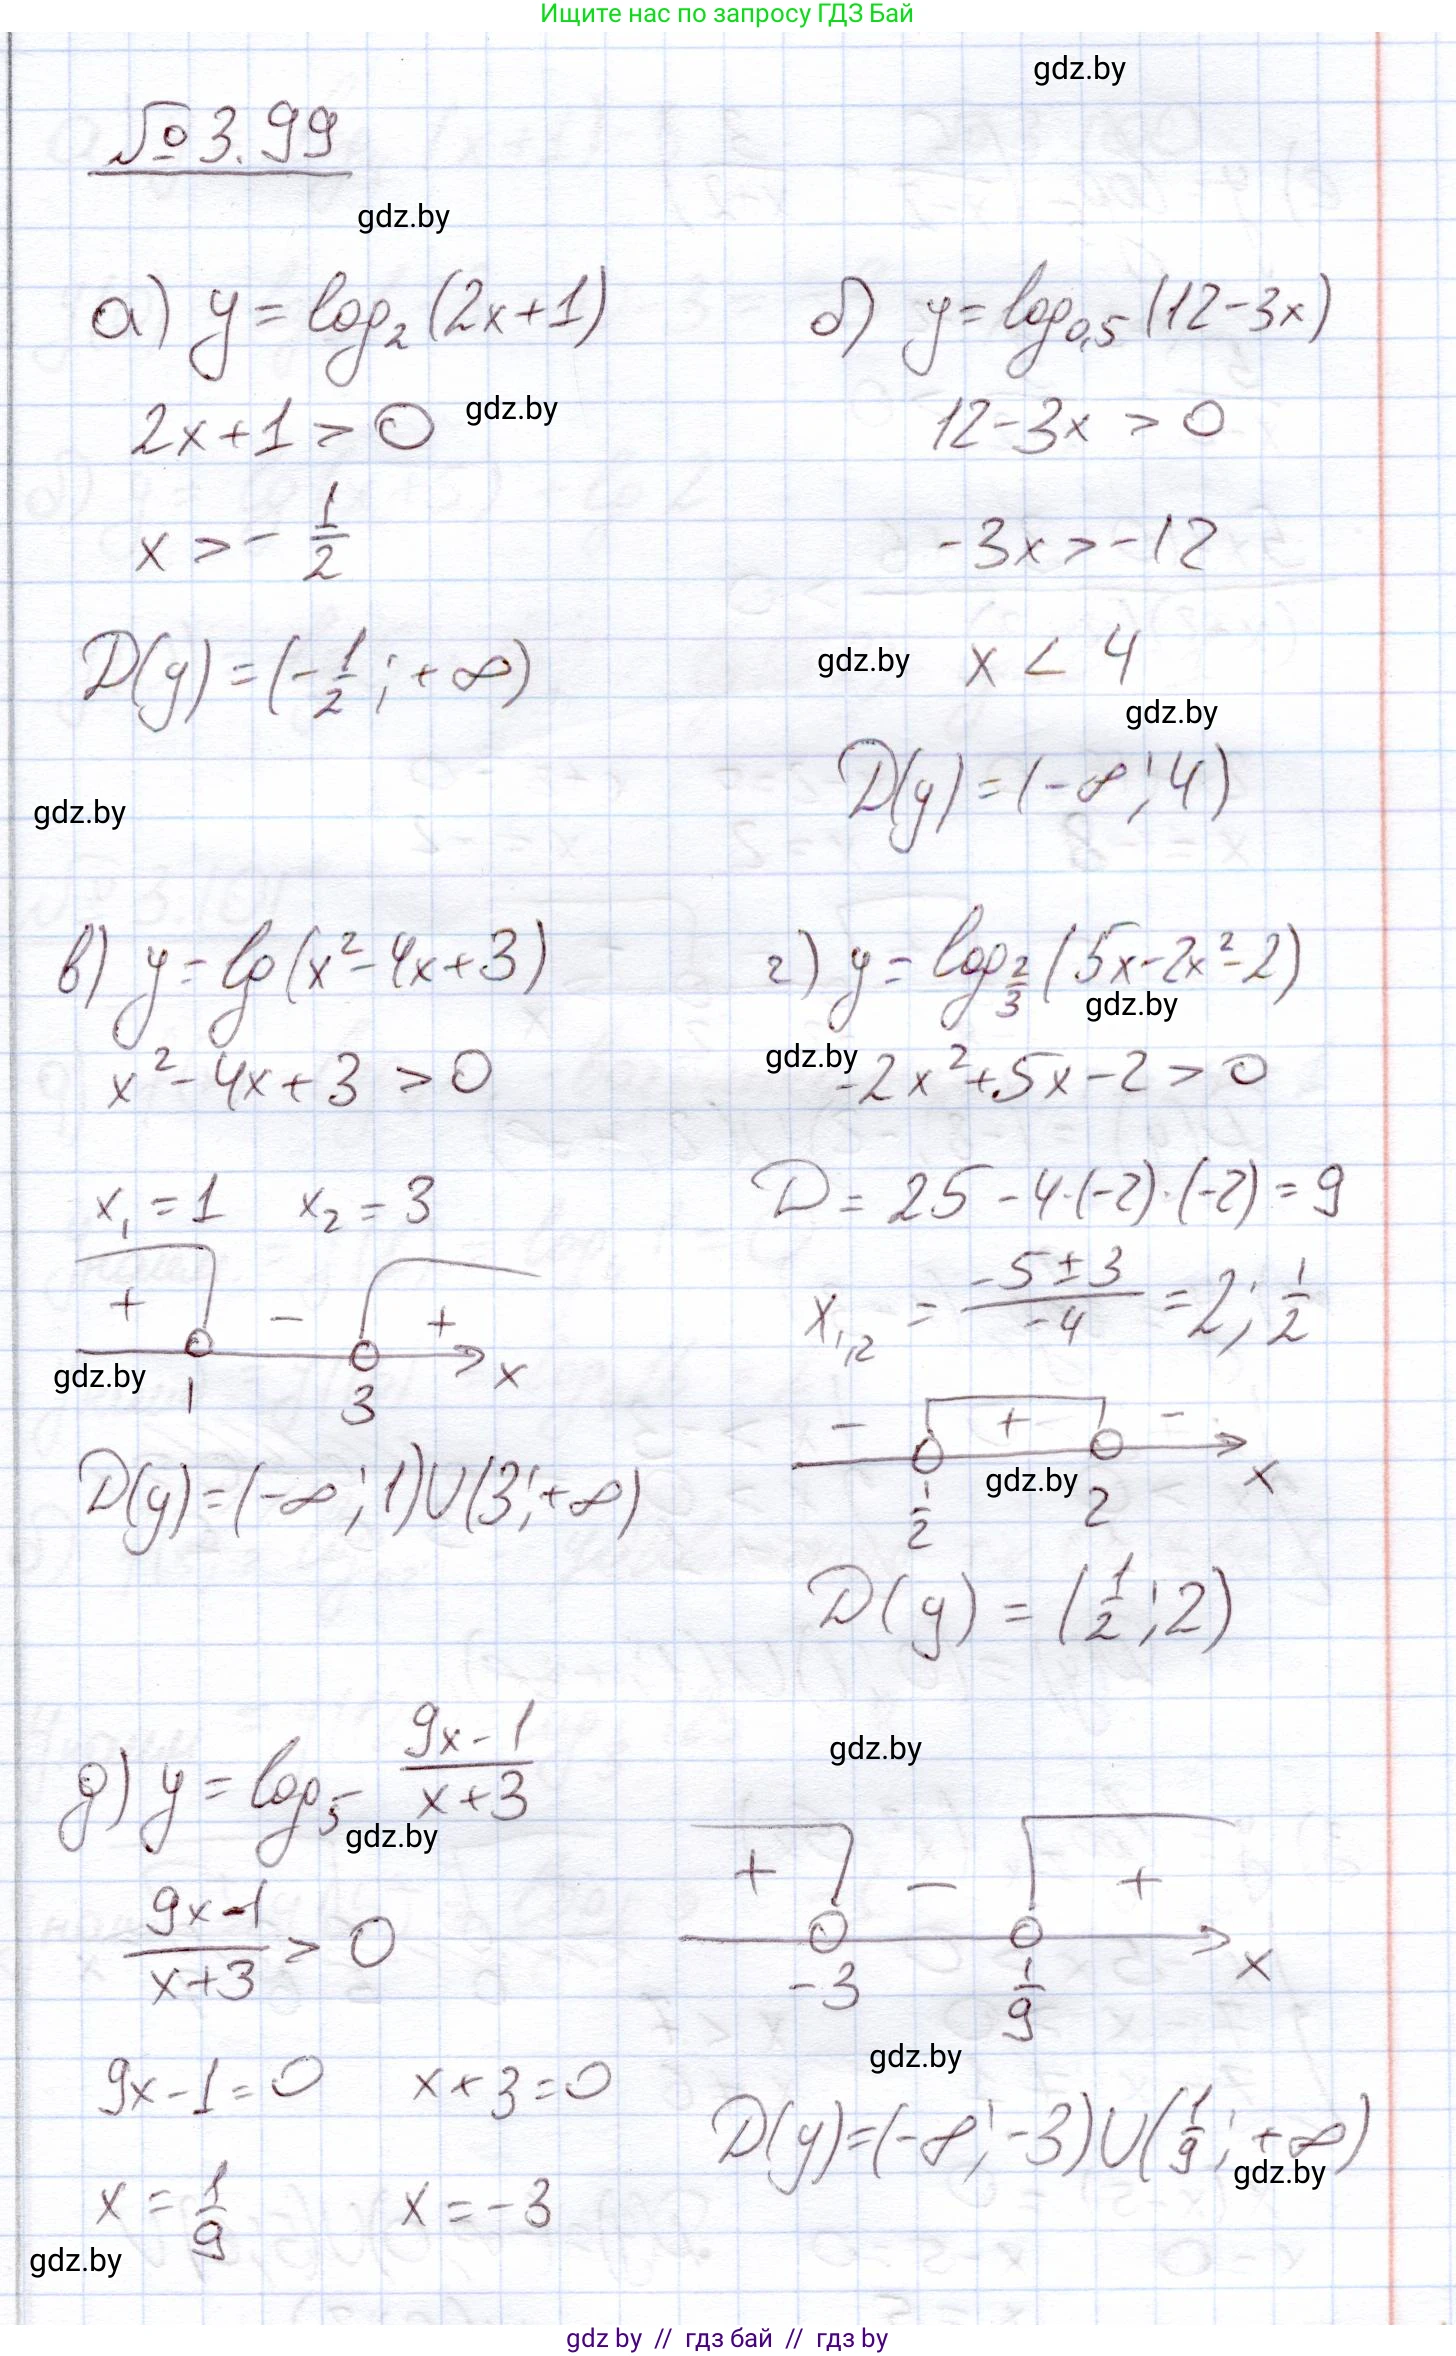 Ищите нас по запросу ГДЗ Бай
gdz.by
№ 3.99
gdz.by
а) y = log₂(2x+1)
2x+1 > 0
gdz.by
x > -1/2
D(y) = (-1/2; +∞)
gdz.by
б) y = log₀,₅(12-3x)
12-3x > 0
-3x > -12
gdz.by
x < 4
gdz.by
D(y) = (-∞; 4)
в) y = lg(x²-4x+3)
x²-4x+3 > 0
x₁ = 1 x₂ = 3
+ - +
1 3 x
gdz.by
D(y) = (-∞; 1)∪(3; +∞)
г) y = log_2/3(5x-2x²-2)
gdz.by
gdz.by
-2x²+5x-2 > 0
D = 25-4·(-2)·(-2) = 9
x₁,₂ = (-5±3)/(-4) = 2; 1/2
- + -
gdz.by
1/2 2 x
D(y) = (1/2; 2)
д) y = log₅ (9x-1)/(x+3)
gdz.by
(9x-1)/(x+3) > 0
9x-1=0 x+3=0
x = 1/9 x = -3
gdz.by
gdz.by
+ - +
-3 1/9 x
gdz.by
D(y) = (-∞; -3)∪(1/9; +∞)
gdz.by
gdz by // гдз бай // гдз by